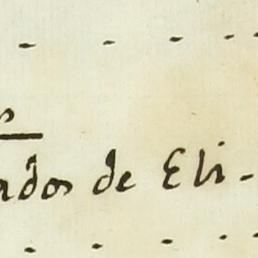 ados de Eli-